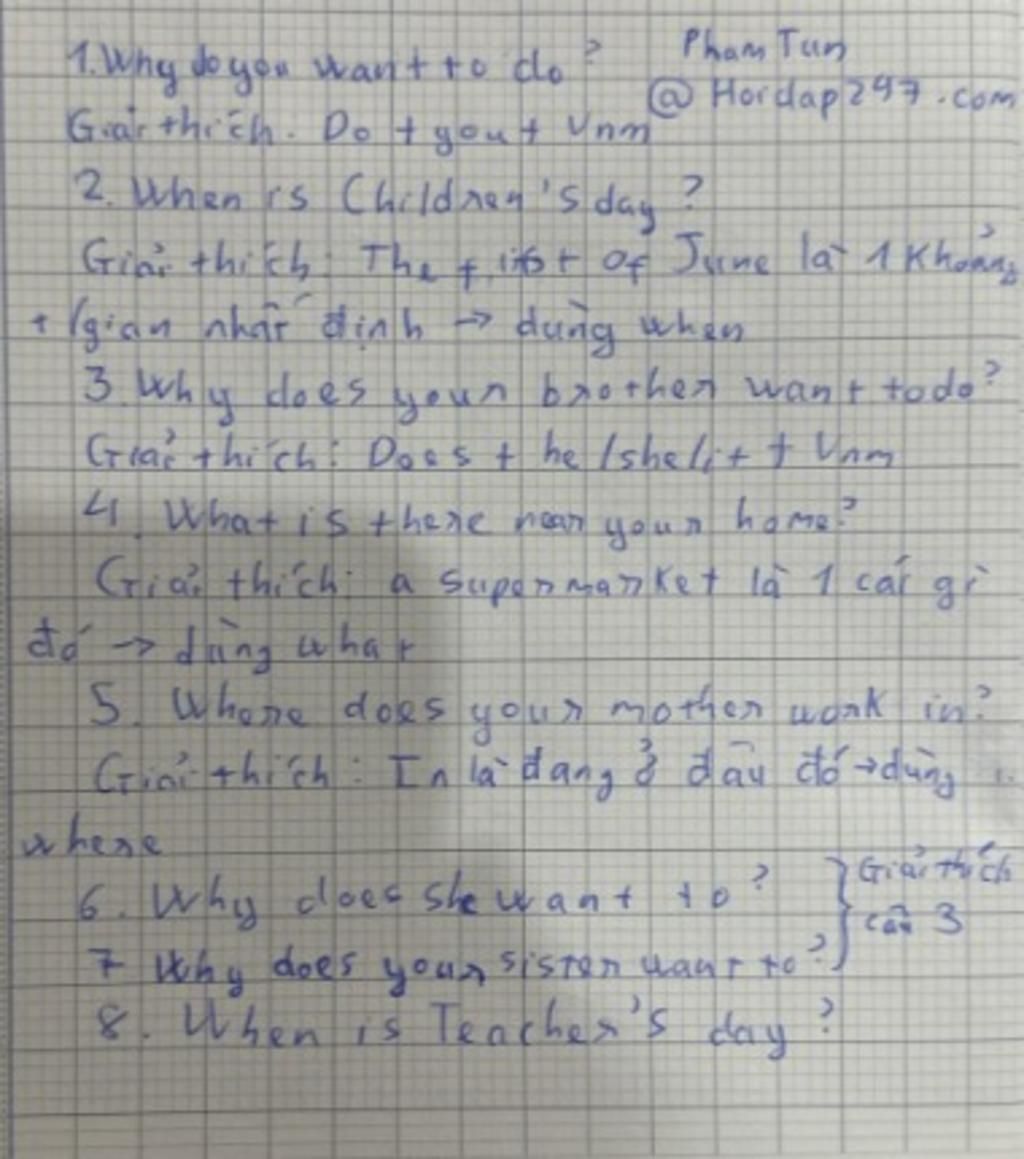 1. Why do you want to do? Pham Tun
@ Hoidap247.com
Giải thích. Do + you + Vnm
2. When is Children's day?
Giải thích: The first of June là 1 khoảng
t/gian nhất định → dùng when
3. Why does your brother want to do?
Giải thích: Does + he/she/it + Vnm
4. What is there near your home?
Giải thích: a supermarket là 1 cái gì
đó → dùng what
5. Where does your mother work in?
Giải thích: In là đang ở đâu đó → dùng
where
6. Why does she want to? } Giải thích
7 Why does your sister want to? } câu 3
8. When is Teacher's day?